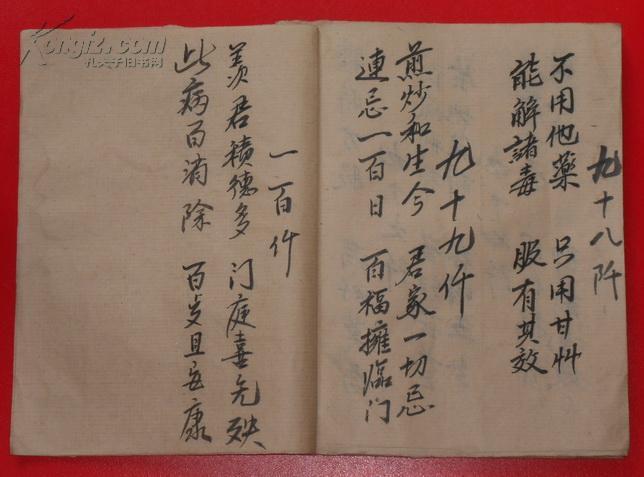 九十八阡
不用他藥 只用甘艸
能解諸毒 服有其效
九十九仟
煎炒和生今 君家一切忌
連忌一百日 百福擁臨门
一百仟
羨君積德多 门庭喜无殃
此病百消除 百岁且安康
Kongfz.com
孔夫子旧书网